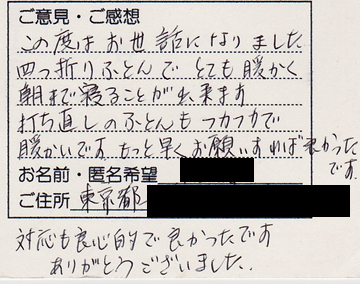 ご意見・ご感想
この度はお世話になりました
四つ折りふとんで とても暖かく
朝まで寝ることが出来ます
打ち直しのふとんもフカフカで
暖かいです もっと早くお願いすれば良かった
です.
お名前・匿名希望
ご住所 東京都
対応も良心的で良かったです
ありがとうございました.